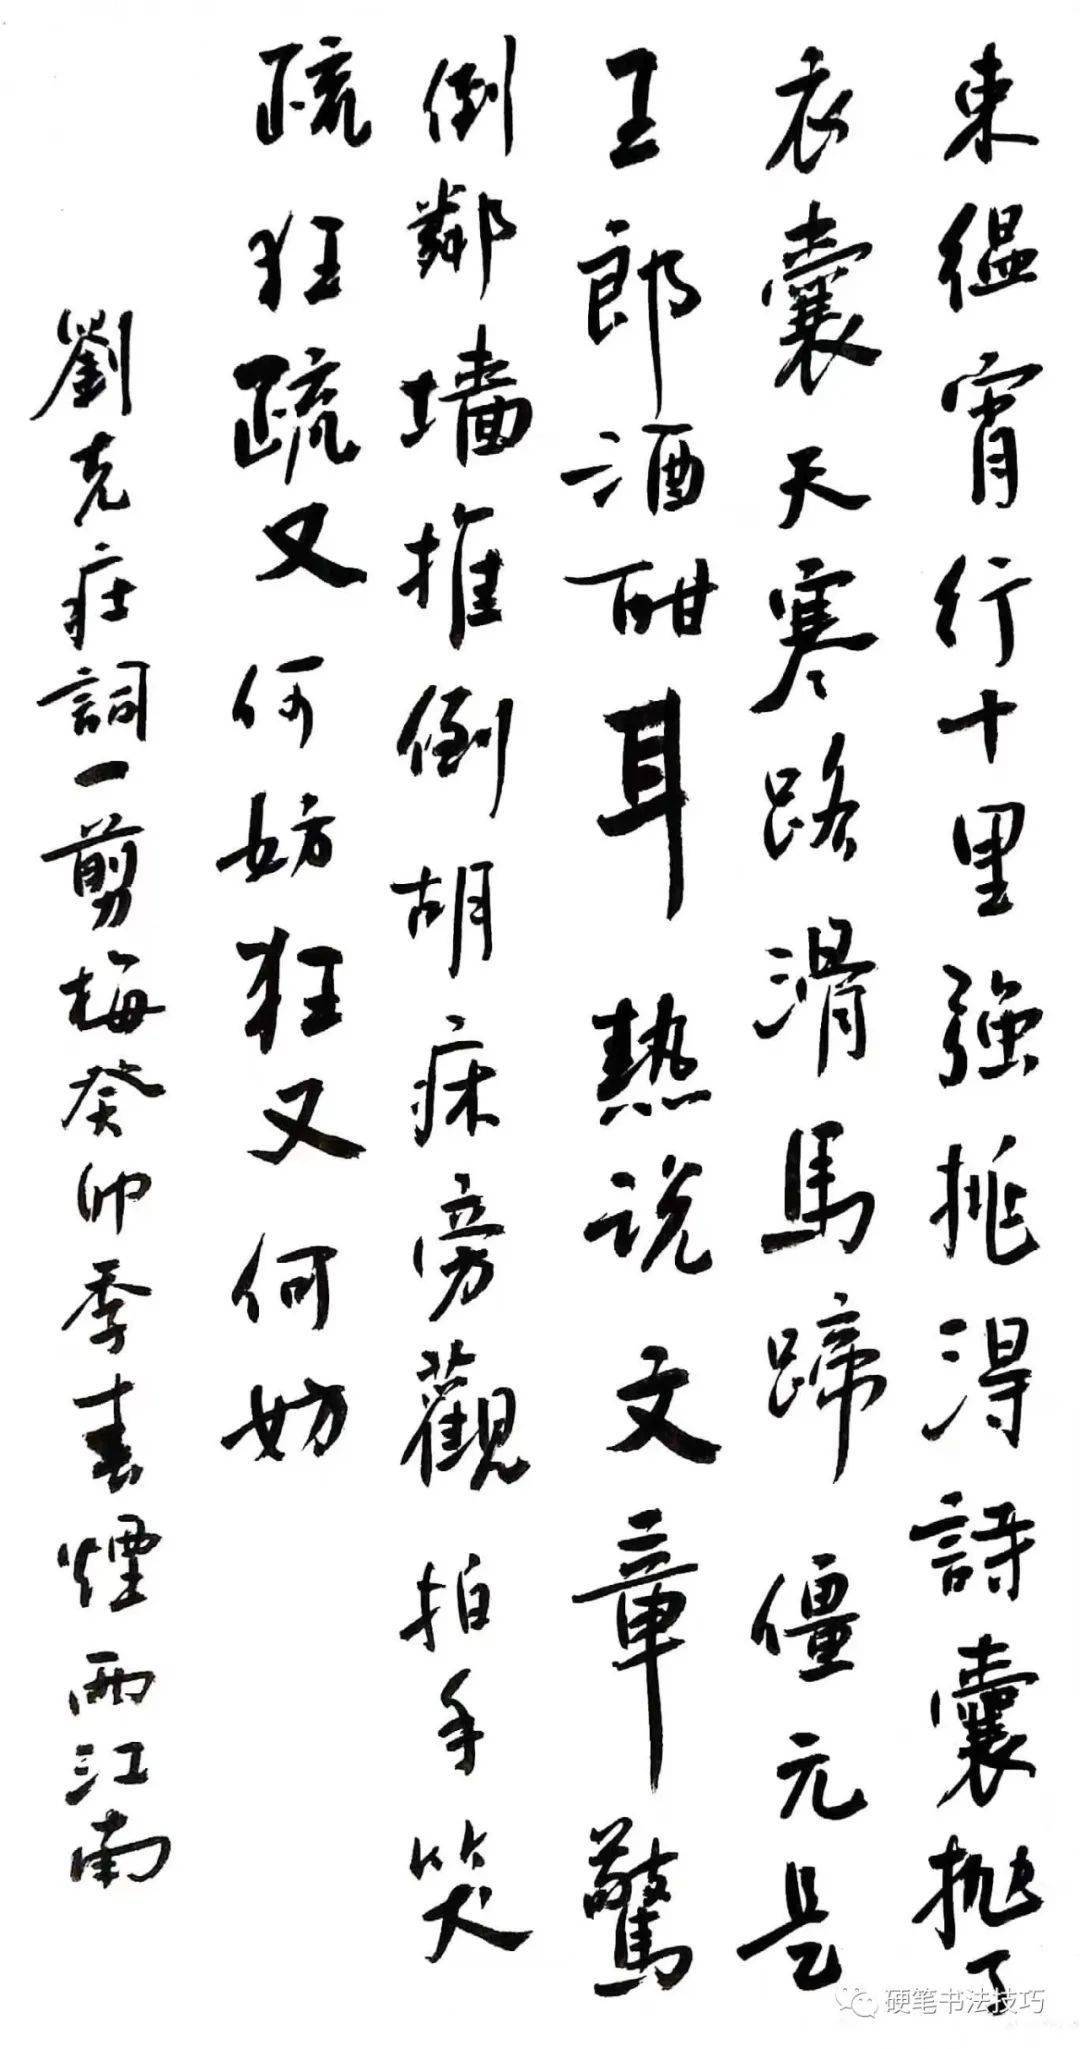 束緼宵行十里強挑得詩囊抛了
衣囊天寒路滑馬蹄僵元是
王郎酒酣耳熱説文章驚
倒鄰墙推倒胡床旁觀拍手笑
疏狂疏又何妨狂又何妨
劉克莊詞一剪梅癸卯季春煙雨江南
硬笔书法技巧